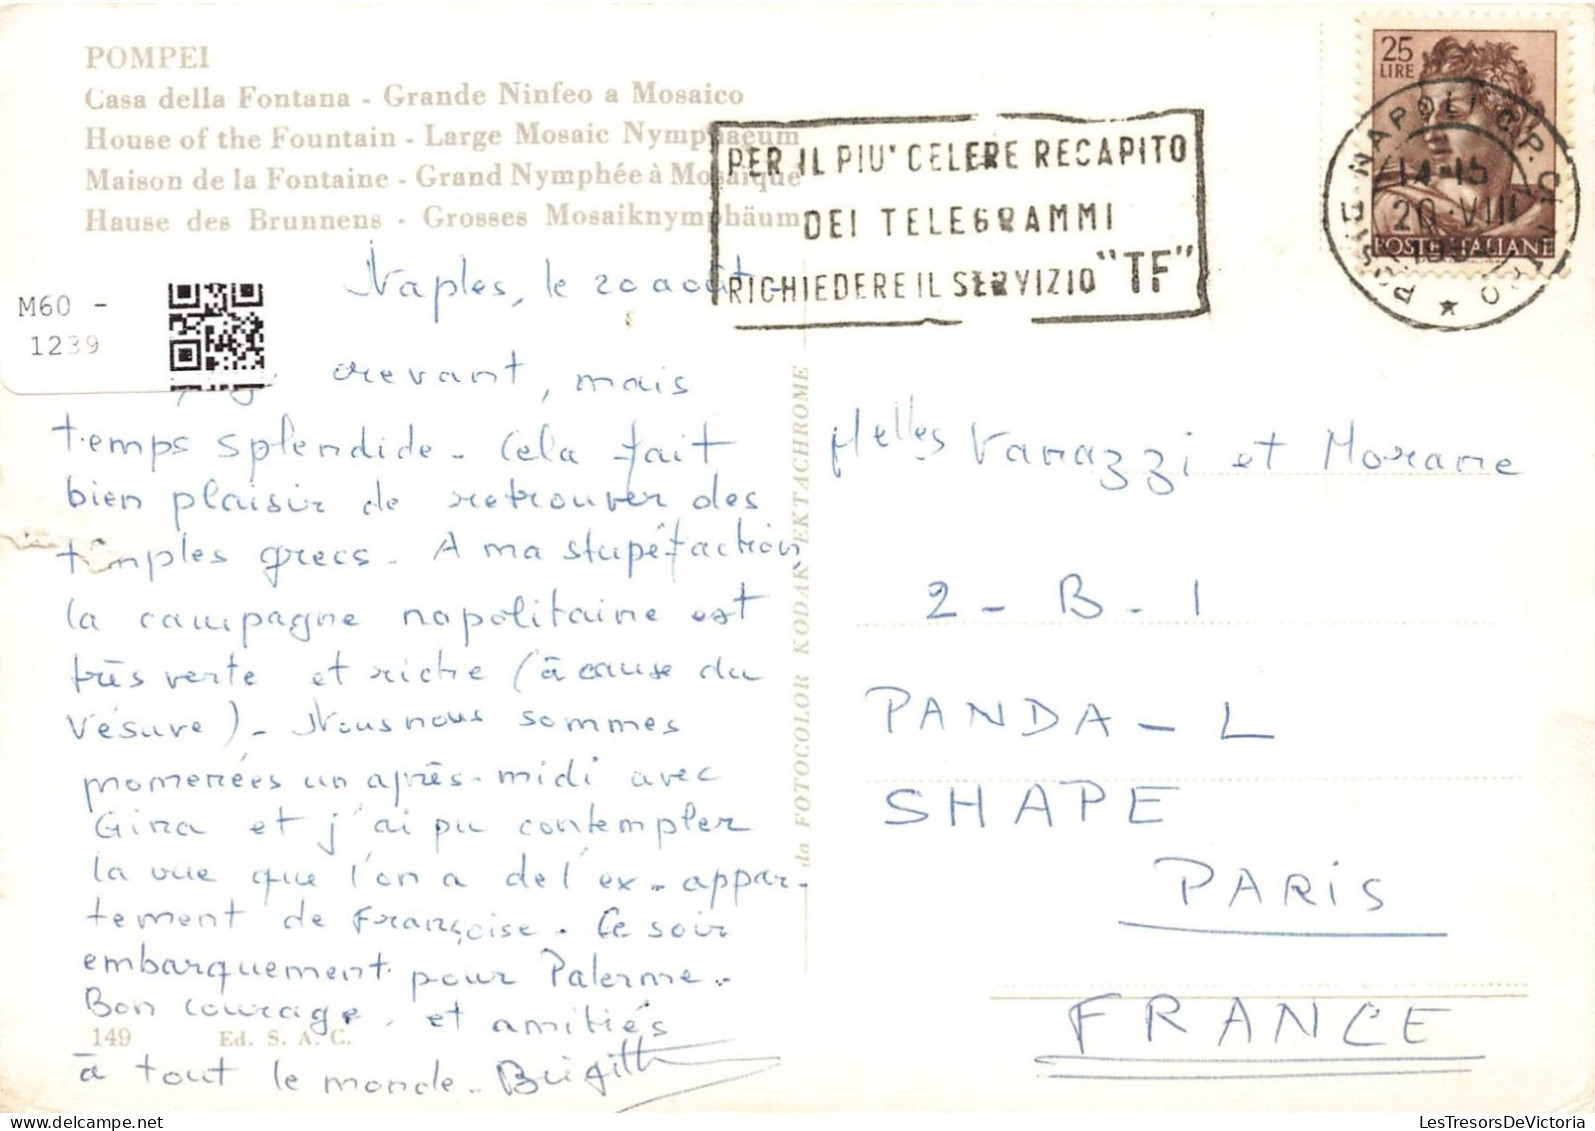 POMPEI
Casa della Fontana - Grande Ninfeo a Mosaico
House of the Fountain - Large Mosaic Nymphaeum
Maison de la Fontaine - Grand Nymphée à Mosaïque
Hause des Brunnens - Grosses Mosaiknymphäum
PER IL PIU' CELERE RECAPITO
DEI TELEGRAMMI
RICHIEDERE IL SERVIZIO "TF"
25
LIRE
POSTE ITALIANE
NAPOLI C.P.
14-15
20·VIII
M60 -
1239
Naples, le 20 août -
crevant, mais
temps splendide - Cela fait
bien plaisir de retrouver des
temples grecs - A ma stupéfaction
la campagne napolitaine est
très verte et riche (à cause du
Vésuve) - Nous nous sommes
promenées un après-midi avec
Gina et j'ai pu contempler
la vue que l'on a de l'ex-appar-
tement de Françoise. Ce soir
embarquement pour Palerme -
Bon courage, et amitiés
à tout le monde - Brigitte
149 Ed. S. A. C.
da FOTOCOLOR KODAK EKTACHROME
Melles Vanazzi et Morane
2 - B - 1
PANDA - L
SHAPE
PARIS
FRANCE
LesTresorsDeVictoria